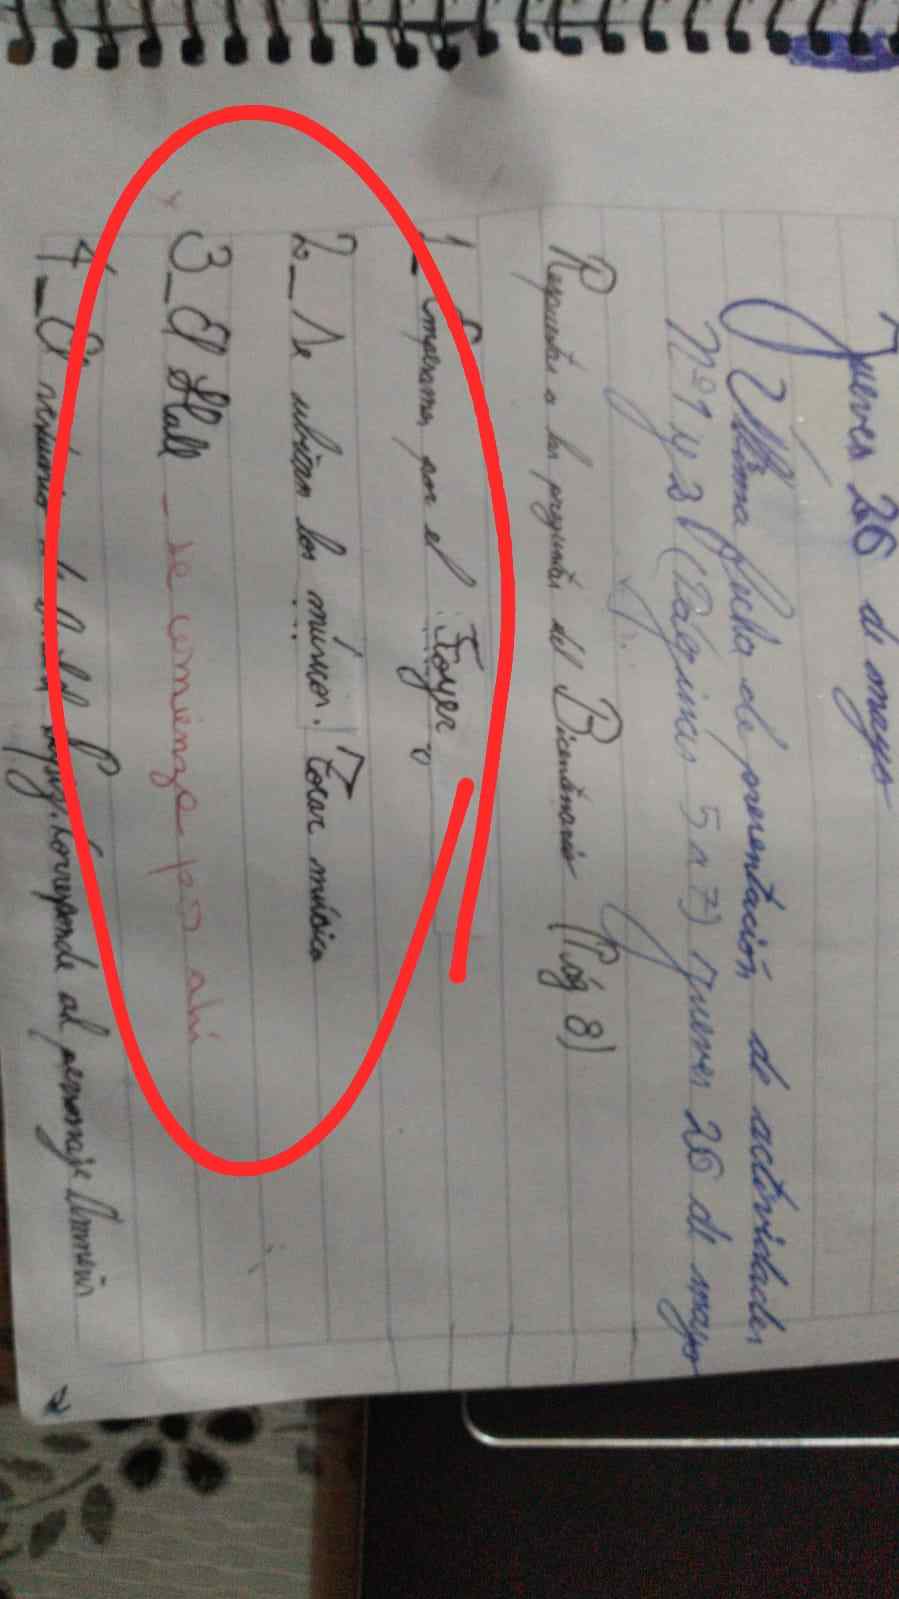 Jueves 26 de mayo
Última fecha de presentación de actividades
N°1 y 2 (Páginas 5 a 7) jueves 26 de mayo
Respuestas a las preguntas del Bicentenario (Pág 8)
1_ Empezamos por el Foyer
2_ Se ubican los músicos. Tocar música
3_ El Hall - se comienza por ahí
4_ El vestuario corresponde al personaje